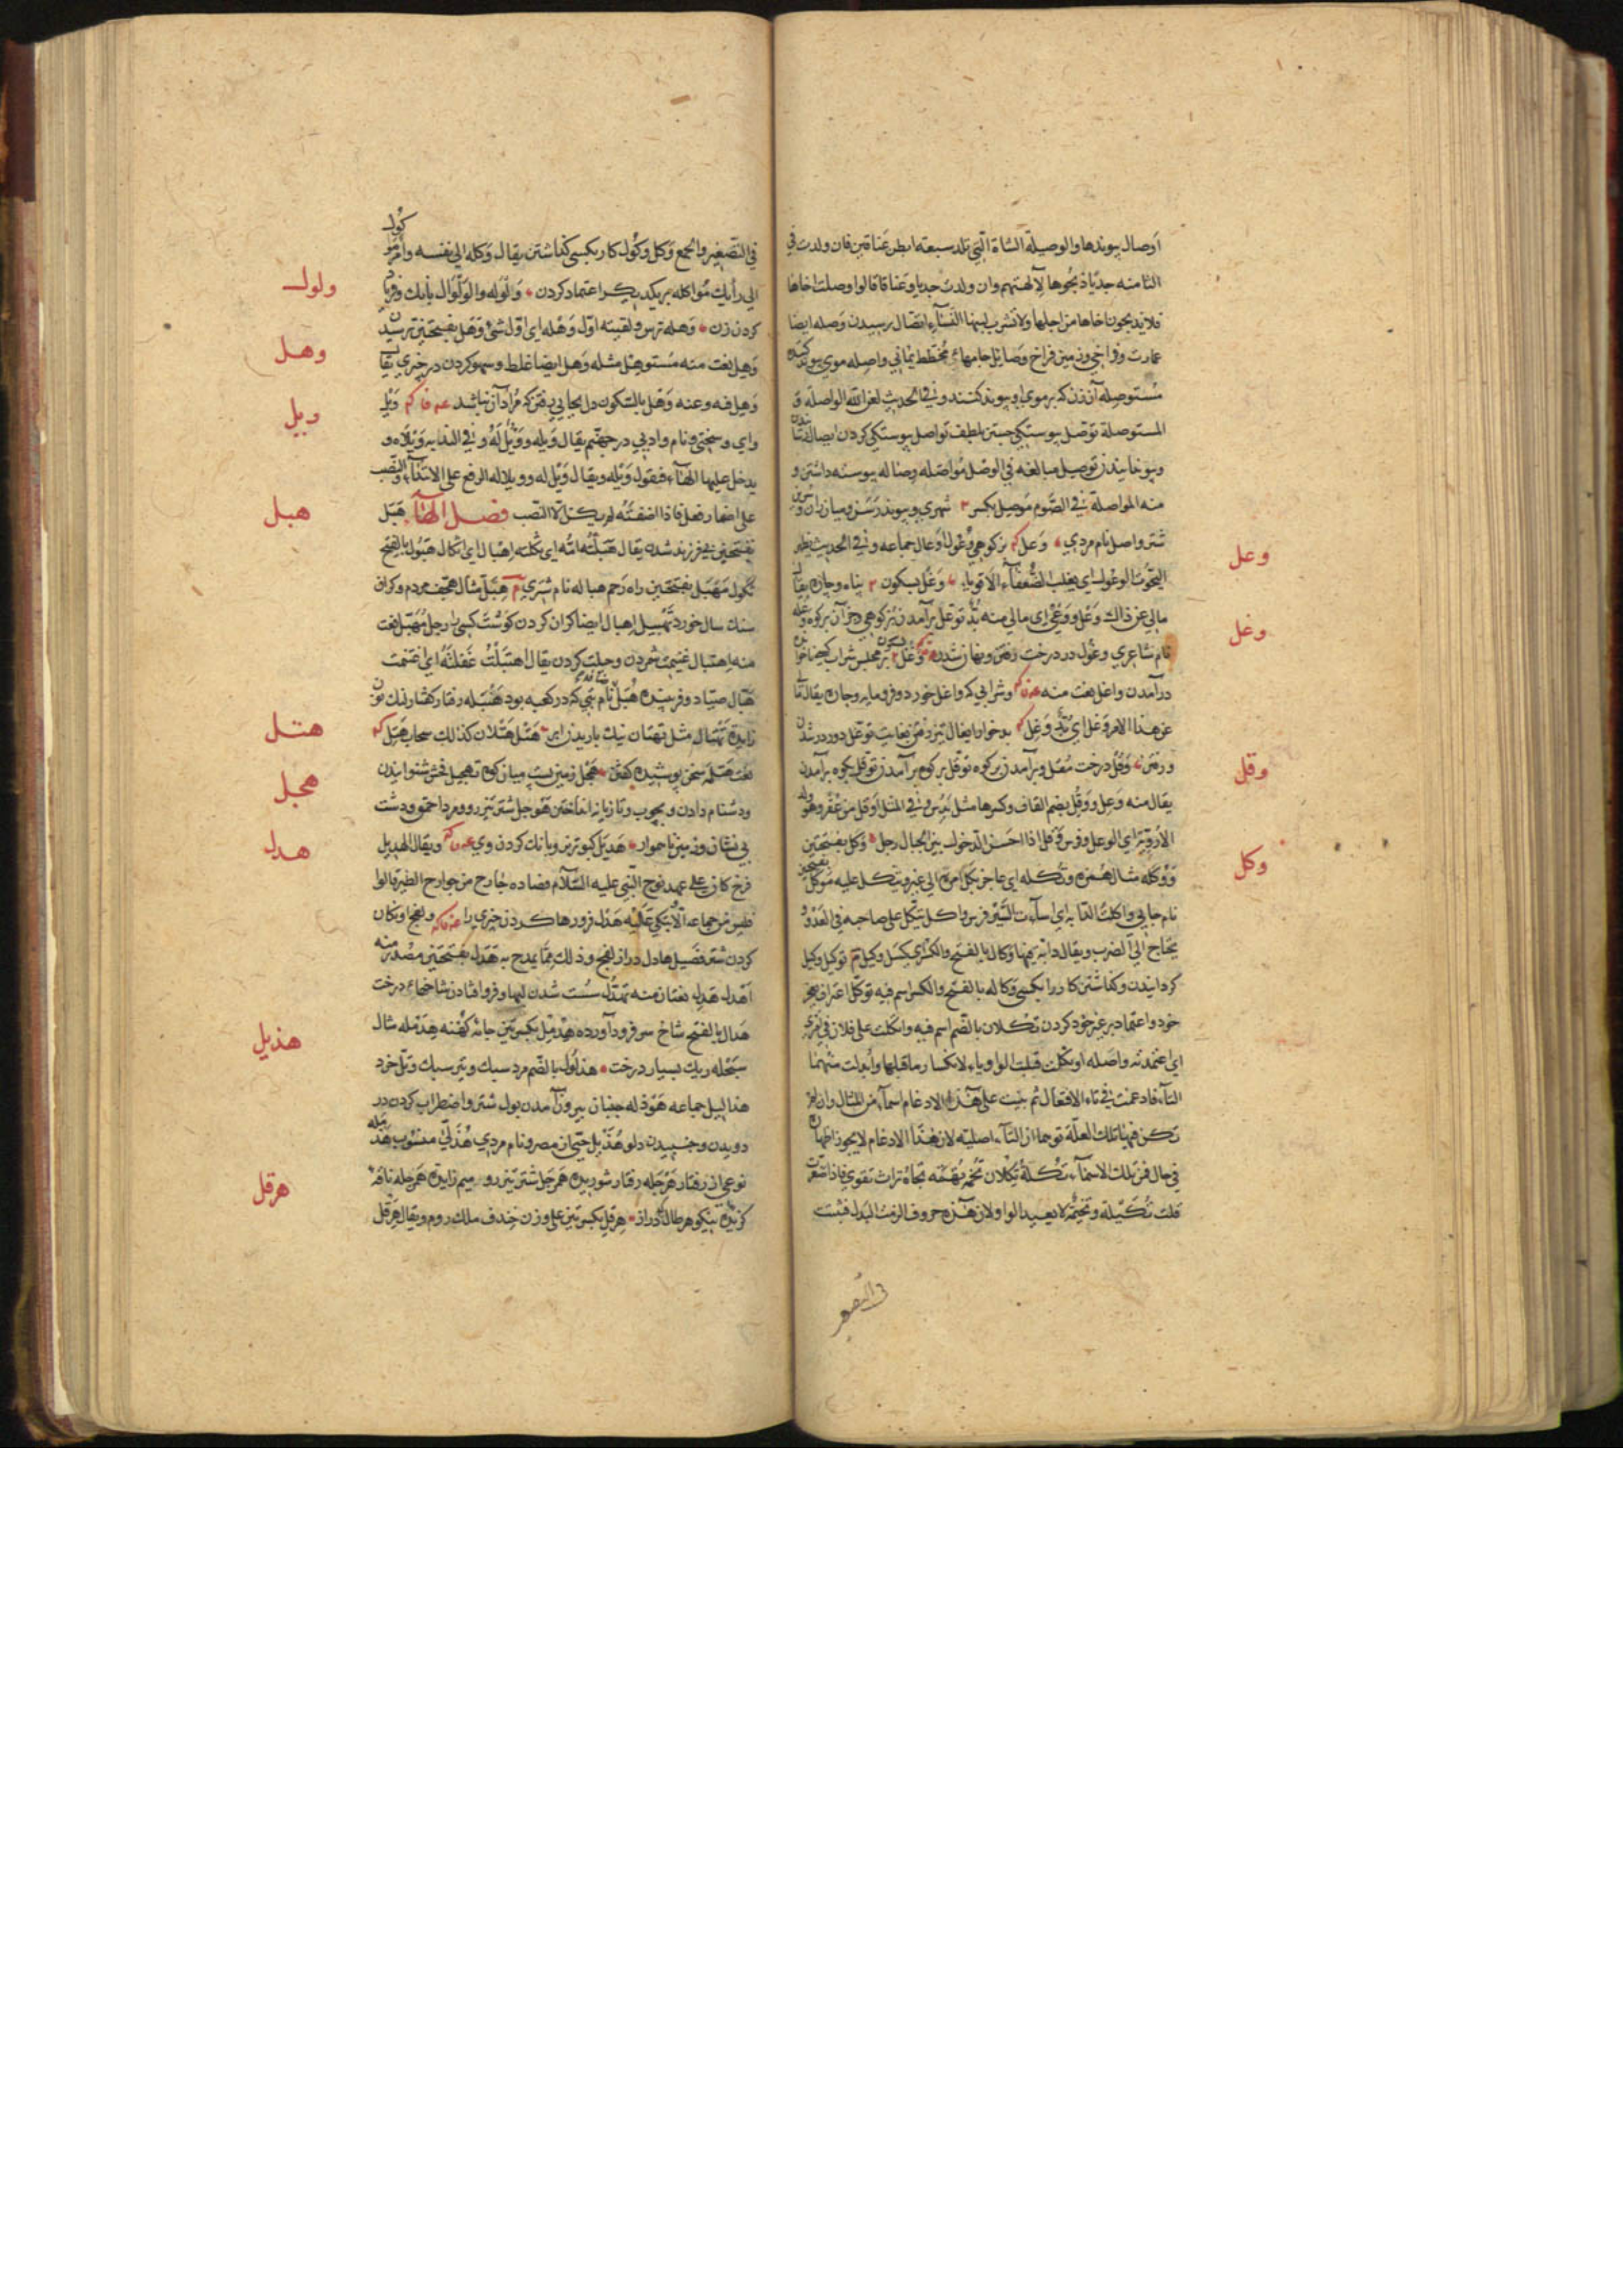 اوصال پیوندها والوصیلة الشاة التی تلد سبعة ابطن عناقین فان ولدت فی
الثامنه جدیا ذبحوها لآلهتهم وان ولدت جدیا وعناقا قالوا وصلت اخاها
فلا یذبحون اخاها من اجلها ولا تشرب لبنها النساء اتصال رسیدن وصله ایضا
عمارت وفراخی وزمین فراخ وصایل جامهاء مخطط یمانی واصله موی پیوند کننده
مستوصلة آن زن که بر موی او پیوند کنند وفی الحدیث لعن الله الواصلة و
المستوصلة توصل پیوستگی جستن بلطف تواصل پیوستگی کردن ایصال
وپیوندانیدن توصیل مبالغه فی الوصل مواصله وصال له پیوسته داشتن و
منه المواصلة فی الصوم موصل بکسر شهری وپیوند رسن ومیان ران وسرین
شتر واصل نام مردی وعل بزکوهی وعول اوعال جماعه وفی الحدیث تظهر
التحوت الوعول ای یغلب الضعفاء الاقویاء وعل بسکون پناه وچاره یقال
مالی عن ذالک وعل ووعی ای مالی منه بد توعل برآمدن بزکوهی وجزآن بر کوه وعله
نام شاعری وغول در درخت رفتن ونهان شدن وغل بر مجلس شراب کسی ناخوانده
درآمدن واغل نعت منه وشرابی که واغل خورد وفرومایه وجان یقال
عن هذا الامر وغل ای بد وغل بدخوار ایغال تیز رفتن بغایت توغل دور در شدن
ورفتن وقل درخت مقل وبرآمدن بر کوه توقل بر کوه برآمدن توقل بکوه برآمدن
یقال منه وعل ووقل بضم القاف وکسرها مثل ندس وفی المثل اوقل من غفر وهو ولد
الارویة ای الوعل وفرس وقل اذا احسن الدخول بین الجبال رجل وکل بفتحتین
ووکله مثال همزه وتکله ای عاجز یکل امره الی غیره ویتکل علیه موکل بفتحتین
نام جایی واکلت الدابة ای اساءت السیر فرس واکل یتکل علی صاحبه فی العدو و
یحتاج الی الضرب ویقال دابة فیها وکال بالفتح والکسر ای کسل وکیل توکیل وکیل
گردانیدن وگذاشتن کار را بکسی وکاله بالفتح والکسر اسم فیه توکل اعتراف بعجز
خود واعتماد بر غیر خود کردن تکلان بالضم اسم فیه واتکلت علی فلان فی امری
ای اعتمدته واصله اوتکلت قلبت الواو یاء لانکسار ما قبلها وابدلت منها
التاء فادغمت فی تاء الافتعال ثم بنیت علی هذا الادغام اسماء من المثال وان لم
تکن فیها تلک العلة توهما ان التاء اصلیة لان هذا الادغام لا یجوز اظهاره
فی حال فمن تلک الاسماء تکله تکلان تخمه تهمه تجاه تراث تقوی فاذا صغرت
قلت تکیلة وتخیمة لا یعید الواو لان هذه حروف الزمت البدل فبقیت
فی التصغیر
وعل
وغل
وقل
وکل
فی التصغیر والجمع وکل وکول کار بکسی گذاشتن یقال وکله الی نفسه وامر
الی رأیک مواکله بر یکدیگر اعتماد کردن ولوله والولوال بانک وفریاد
کردن زن وهله ترس ولقیته اول وهله ای اول شئ وهل بفتحتین ترسیدن
وهل نعت منه مستوهل مثله وهل ایضا غلط وسهو کردن در چیزی یقال
وهل فیه وعنه وهل بالسکون دل بجایی رفتن که مراد آن نباشد ویل
وای وسختی ونام وادیی در جهنم یقال ویله وویل له وفی الندابة ویلاه و
یدخل علیها الهاء فیقول ویله ویقال ویل له وویلا له الرفع علی الابتداء والنصب
علی اضمار فعل فاذا اضفته لم یکن الا النصب فصل الهاء هبل
بفتحتین بی فرزند شدن یقال هبلته امه ای ثکلته اهبال ای اثکال هبول بالفتح
ثکول مهبل بفتحتین راه رحم هباله نام هبل مثال هجف مردم گران
سنک سال خورد تهبیل اهبال ایضا گران کردن گوشت کسی را رجل مهبل نعت
منه اهتبال غنیمت شمردن وحیلت کردن یقال اهتبلت غفلته ای اغتنمت
هبال صیاد وفریبنده هبل نام بتی که در کعبه بود هنبله رفتار کفتار لنک نون
زایده تهتال مثل تهتان نیک باریدن ای هتل هتلان کذلک سحاب هتل
نعت هتمله سخن پوشیده گفتن هجل زمین پست میان کوه تهجیل فحش شنوانیدن
ودشنام دادن وبچوب وتازیانه انداختن هوجل شتر تیزرو ومرد احمق ودشت
بی نشان وزمین ناهموار هدیل کبوتر نر وبانک کردن وی ویقال الهدیل
فرخ کان علی عهد نوح النبی علیه السلام فصاده جارح من جوارح الطیر قالوا
فلیس من حمامة الا وتبکی علیه هدل فروها کردن چیزی را ولفج اونکان
کردن شتر فصیل هادل دراز لفج وذلک مما یمدح به هدل بفتحتین مصدر منه
اهدل هدل نعتان منه تهدل سست شدن لبها وفروافتادن شاخهاء درخت
هدال بالفتح شاخ سر فرود آورده هدمل بکسرتین جامه کهنه هدمله مثال
سبحله ریک بسیار درخت هذلول بالضم مرد سبک وتیر سبک وتل خرد
هذالیل جماعه هوذله جنبان بیرون آمدن بول شتر واضطراب کردن در
دویدن وجنبیدن دلو هذیل حی از مضر ونام مردی هذلی منسوب
نوعی از رفتار هرجله رفتار شوریده همرجل شتر تیزرو میم زایده همرجله ناقه
گزیده نیکو هرطال دراز هرقل بکسرتین علی وزن خندف ملک روم ویقال هرقل
ولول
وهل
ویل
هبل
هتل
هجل
هدل
هذیل
هرقل